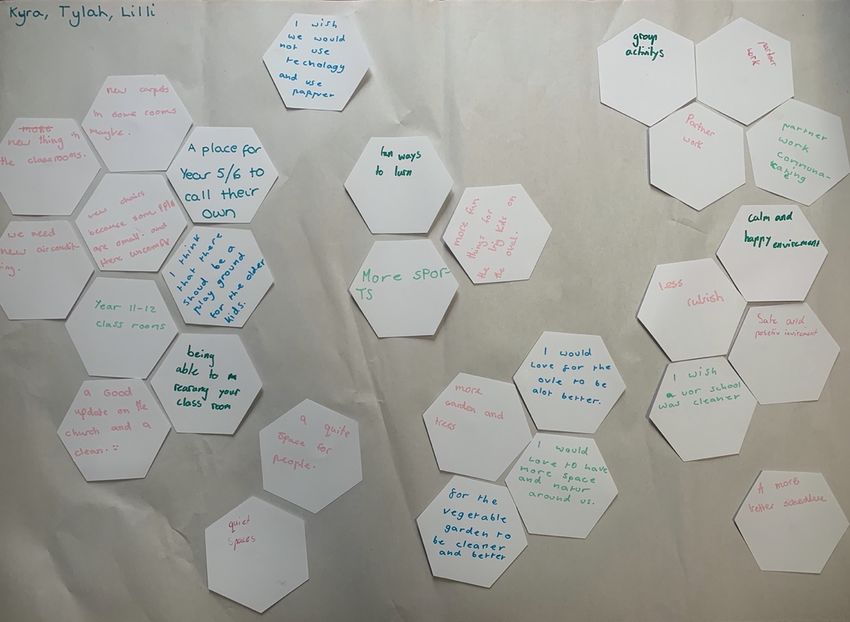 Kyra, Tylah, Lilli
I wish
we would
not use
techology
and use
pappver
group
activitys
partner
work
Partner
work
partner
work
commona-
cating
new carpets
in some rooms
maybe.
more
new thing in
the classrooms.
A place for
Year 5/6 to
call their
own
new chairs
because some
are small. and
there
we need
new aircondit
ing.
I think
that there
shoud be a
play ground
for the older
kids.
Year 11-12
class rooms
being
able to
your
class room
a Good
update on the
church and a
clean.
fun ways
to lurn
more fun
things for
the big kids on
the oval.
More spor-
ts
calm and
happy envirement
Less
rubish
Safe and
positiv
I wish
a uor school
was cleaner
I would
Love for the
ovle to be
alot better.
more
garden and
trees
I would
Love to have
more space
and natur
around us.
for the
vegetable
garden to
be cleaner
and better
a quite
space for
people.
quiet
spaces
A more
better